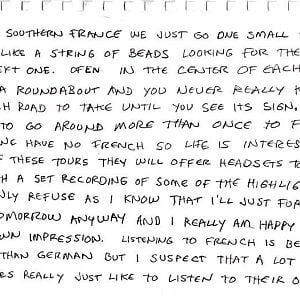 SOUTHERN FRANCE WE JUST GO ONE SMALL
LIKE A STRING OF BEADS LOOKING FOR THE
EXT ONE. OFEN IN THE CENTER OF EACH
A ROUNDABOUT AND YOU NEVER REALLY K
H ROAD TO TAKE UNTIL YOU SEE ITS SIGN,
TO GO AROUND MORE THAN ONCE TO F
WE HAVE NO FRENCH SO LIFE IS INTERES
F THESE TOURS THEY WILL OFFER HEADSETS TO
H A SET RECORDING OF SOME OF THE HIGHLIG
NLY REFUSE AS I KNOW THAT I'LL JUST FOR
OMORROW ANYWAY AND I REALLY AM HAPPY
WN IMPRESSION. LISTENING TO FRENCH IS BE
THAN GERMAN BUT I SUSPECT THAT A LOT
RS REALLY JUST LIKE TO LISTEN TO THEIR O